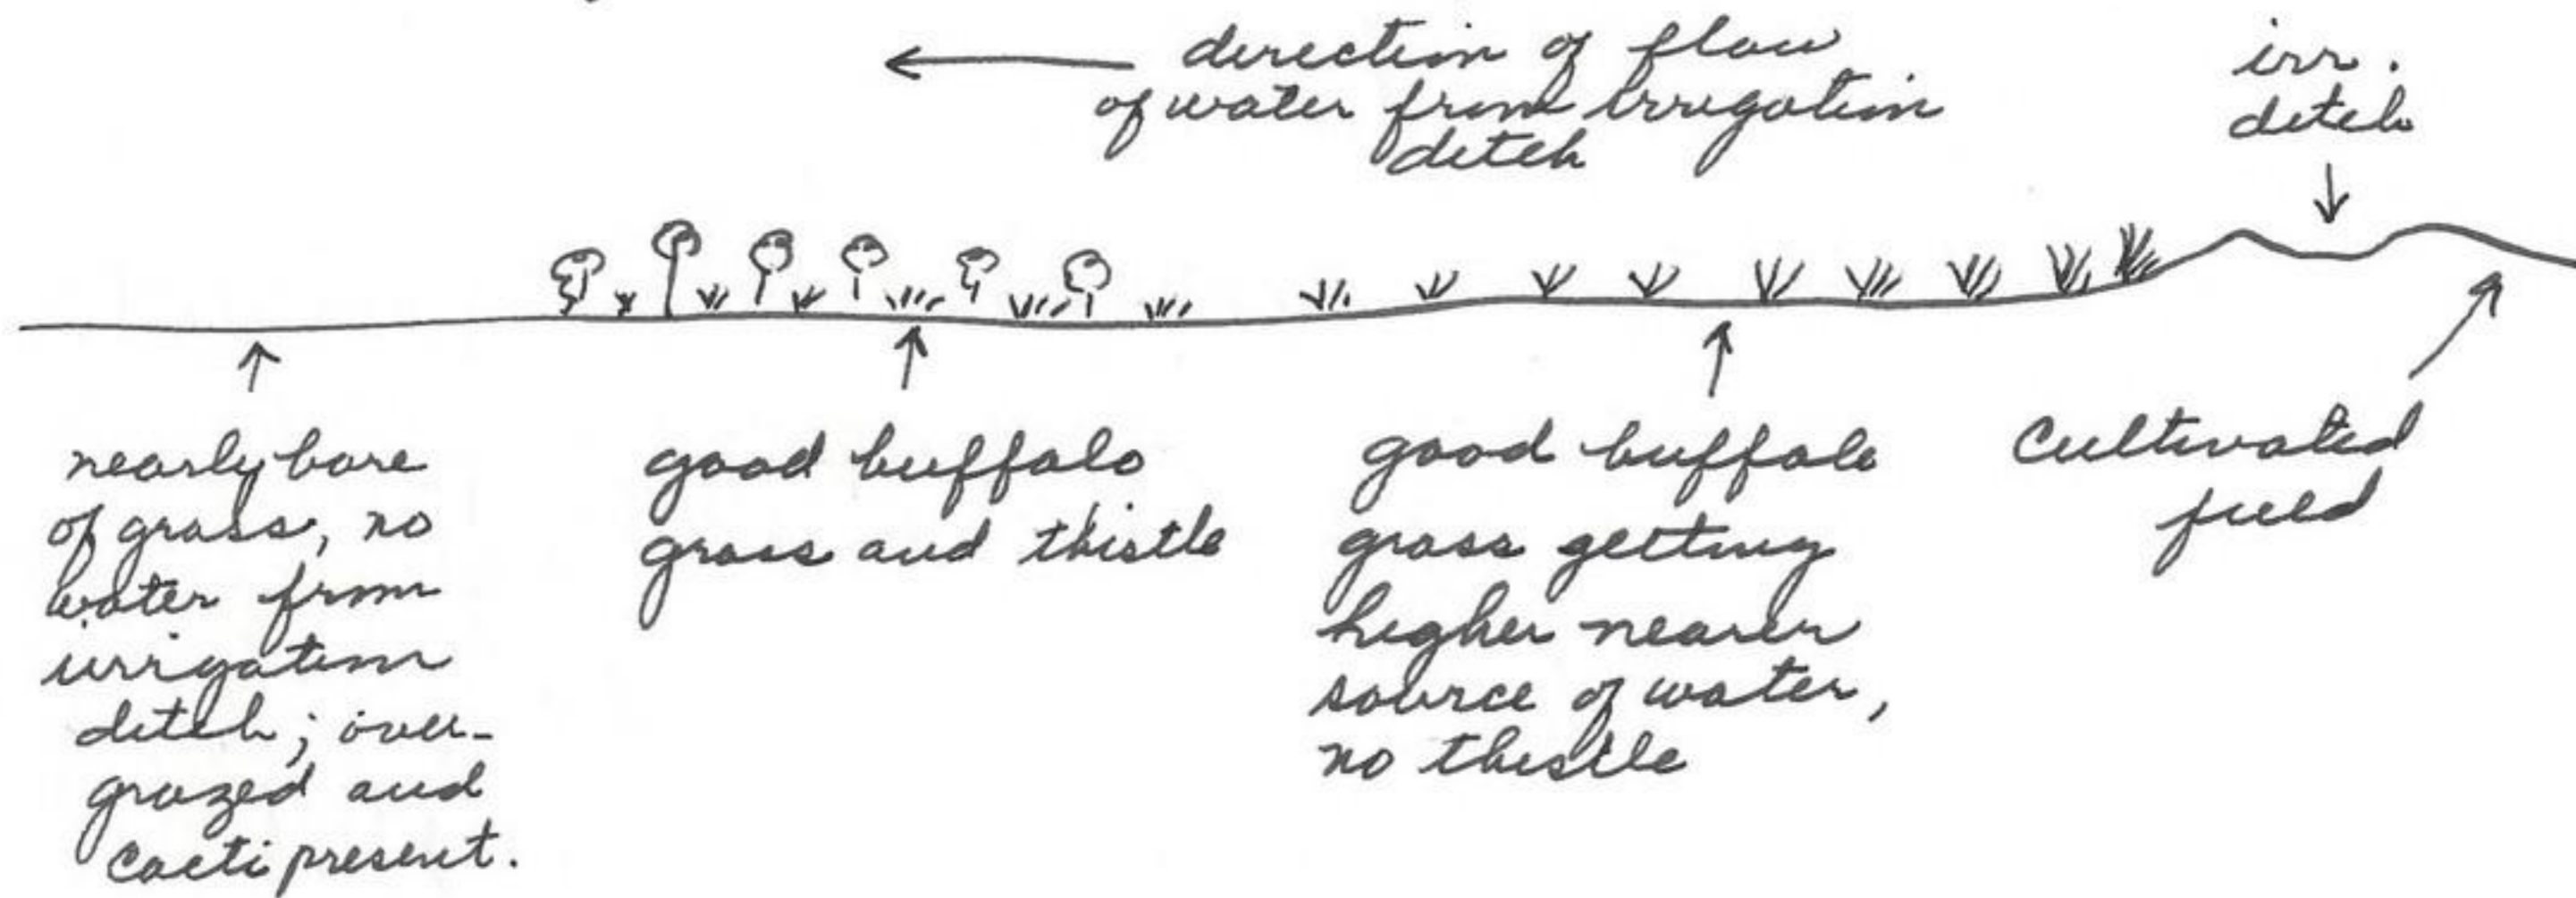 direction of flow
of water from irrigation
ditch
irr.
ditch
nearly bare
of grass, no
water from
irrigation
ditch; over-
grazed and
cacti present.
good buffalo
grass and thistle
good buffalo
grass getting
higher nearer
source of water,
no thistle
Cultivated
field